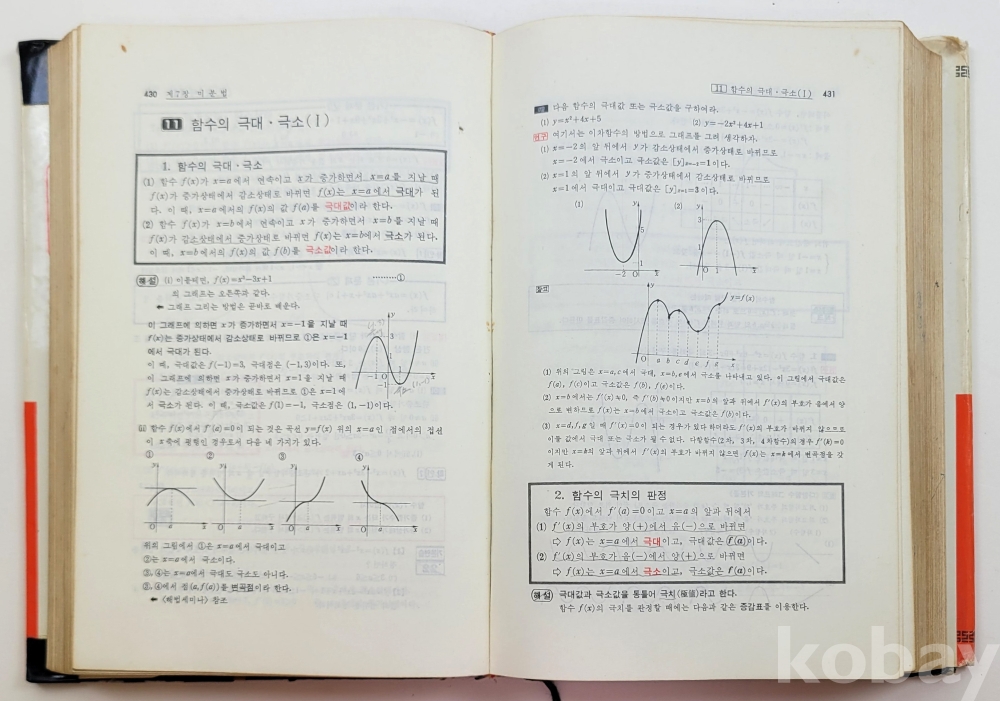 430 제7장 미분법
11 함수의 극대·극소(Ⅰ)
1. 함수의 극대·극소
(1) 함수 f(x)가 x=a에서 연속이고 x가 증가하면서 x=a를 지날 때
f(x)가 증가상태에서 감소상태로 바뀌면 f(x)는 x=a에서 극대가 된
다. 이 때, x=a에서의 f(x)의 값 f(a)를 극대값이라 한다.
(2) 함수 f(x)가 x=b에서 연속이고 x가 증가하면서 x=b를 지날 때
f(x)가 감소상태에서 증가상태로 바뀌면 f(x)는 x=b에서 극소가 된다.
이 때, x=b에서의 f(x)의 값 f(b)를 극소값이라 한다.
해설 (i) 이를테면, f(x)=x³-3x+1 ………①
의 그래프는 오른쪽과 같다.
← 그래프 그리는 방법은 곧바로 배운다.
이 그래프에 의하면 x가 증가하면서 x=-1을 지날 때
f(x)는 증가상태에서 감소상태로 바뀌므로 ①은 x=-1
에서 극대가 된다.
이 때, 극대값은 f(-1)=3, 극대점은 (-1, 3)이다. 또,
이 그래프에 의하면 x가 증가하면서 x=1을 지날 때
f(x)는 감소상태에서 증가상태로 바뀌므로 ①은 x=1에
서 극소가 된다. 이 때, 극소값은 f(1)=-1, 극소점은 (1, -1)이다.
y
3
1
-1 O 1 x
-1
(ii) 함수 f(x)에서 f'(a)=0이 되는 것은 곡선 y=f(x) 위의 x=a인 점에서의 접선
이 x축에 평행인 경우로서 다음 네 가지가 있다.
① ② ③ ④
y y y y
O a x O a x O a x O a x
위의 그림에서 ①은 x=a에서 극대이고
②는 x=a에서 극소이다.
③, ④는 x=a에서 극대도 극소도 아니다.
③, ④에서 점(a, f(a))를 변곡점이라 한다.
← 〈해법세미나〉 참조
11 함수의 극대·극소(Ⅰ) 431
다음 함수의 극대값 또는 극소값을 구하여라.
(1) y=x²+4x+5 (2) y=-2x²+4x+1
연구 여기서는 이차함수의 방법으로 그래프를 그려 생각하자.
(1) x=-2의 앞 뒤에서 y가 감소상태에서 증가상태로 바뀌므로
x=-2에서 극소이고 극소값은 [y]x=-2=1이다.
(2) x=1의 앞 뒤에서 y가 증가상태에서 감소상태로 바뀌므로
x=1에서 극대이고 극대값은 [y]x=1=3이다.
(1) y (2) y
5 3
1 1
-2 x O 1 x
참고
y y=f(x)
O a b c d e f g x
(1) 위의 그림은 x=a, c에서 극대, x=b, e에서 극소를 나타내고 있다. 이 그림에서 극대값은
f(a), f(c)이고 극소값은 f(b), f(e)이다.
(2) x=b에서는 f'(x)≒0, 즉 f'(b)≒0이지만 x=b의 앞과 뒤에서 f'(x)의 부호가 음에서 양
으로 변하므로 f(x)는 x=b에서 극소이고 극소값은 f(b)이다.
(3) x=d, f, g일 때 f'(x)=0이 되는 경우가 있다 하더라도 f'(x)의 부호가 바뀌지 않으므로
이들 값에서 극대 또는 극소가 될 수 없다. 다항함수(2차, 3차, 4차함수)의 경우 f'(k)=0
이지만 x=k의 앞과 뒤에서 f'(x)의 부호가 바뀌지 않으면 f(x)는 x=k에서 변곡점을 갖
게 된다.
2. 함수의 극치의 판정
함수 f(x)에서 f'(a)=0이고 x=a의 앞과 뒤에서
(1) f'(x)의 부호가 양(+)에서 음(-)으로 바뀌면
⇨ f(x)는 x=a에서 극대이고, 극대값은 f(a)이다.
(2) f'(x)의 부호가 음(-)에서 양(+)으로 바뀌면
⇨ f(x)는 x=a에서 극소이고, 극소값은 f(a)이다.
해설 극대값과 극소값을 통틀어 극치(極値)라고 한다.
함수 f(x)의 극치를 판정할 때에는 다음과 같은 증감표를 이용한다.
kobay